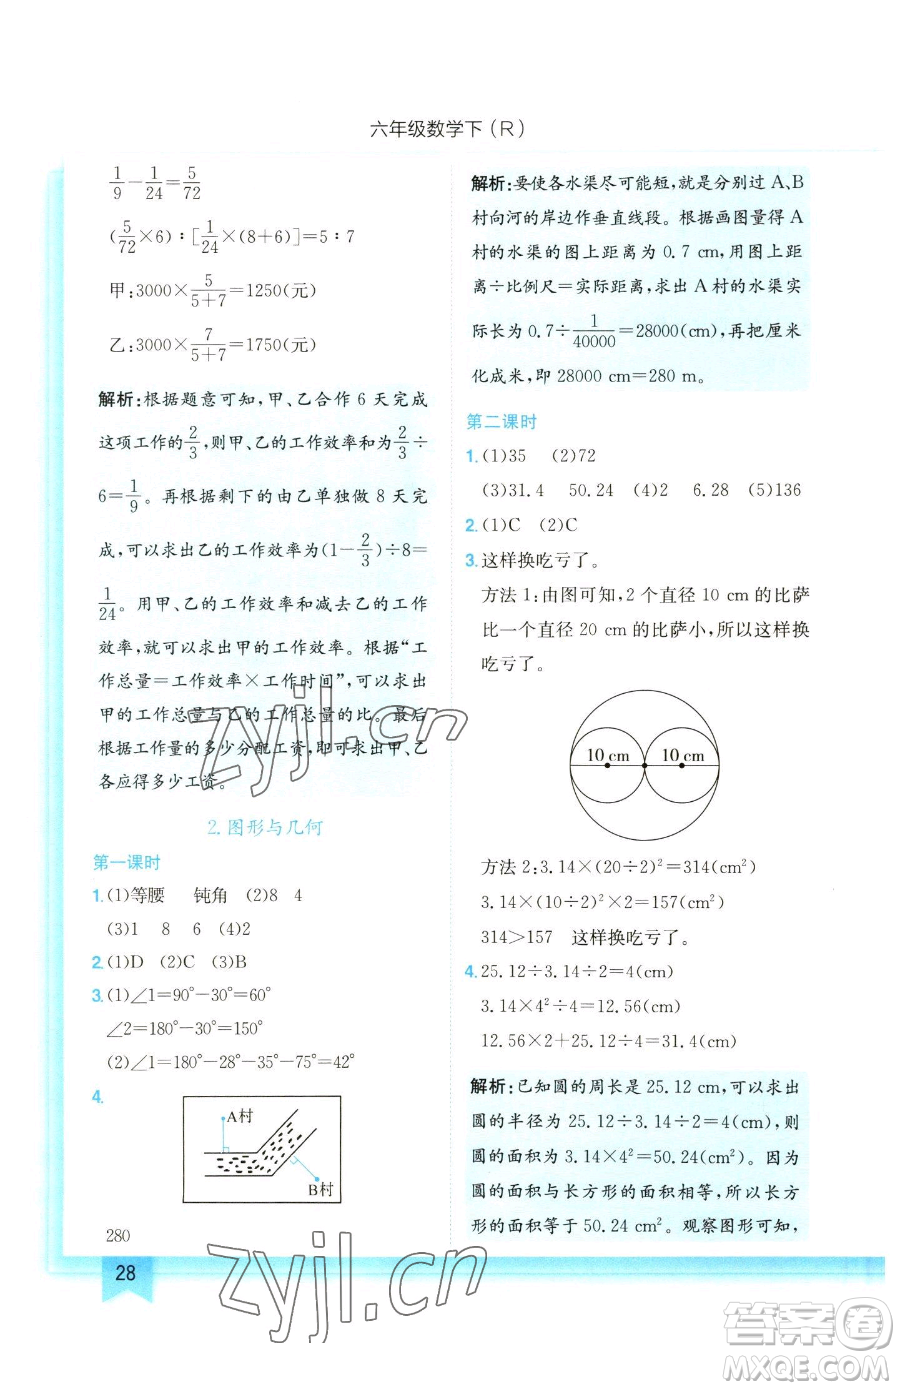 六年级数学下(R)
1/9－1/24＝5/72
(5/72×6)∶[1/24×(8＋6)]＝5∶7
甲:3000×5/(5＋7)＝1250(元)
乙:3000×7/(5＋7)＝1750(元)
解析:根据题意可知,甲、乙合作 6 天完成
这项工作的2/3,则甲、乙的工作效率和为2/3÷
6＝1/9。再根据剩下的由乙单独做 8 天完
成,可以求出乙的工作效率为(1－2/3)÷8＝
1/24。用甲、乙的工作效率和减去乙的工作
效率,可以求出甲的工作效率。根据“工
作总量＝工作效率×工作时间”,可以求出
甲的工作总量与乙的工作总量的比。最后
根据工作量的多少分配工资,即可求出甲、乙
各应得多少工资。
2.图形与几何
第一课时
1.(1)等腰 钝角 (2)8 4
(3)1 8 6 (4)2
2.(1)D (2)C (3)B
3.(1)∠1＝90°－30°＝60°
∠2＝180°－30°＝150°
(2)∠1＝180°－28°－35°－75°＝42°
4.
A村
B村
280
28
解析:要使各水渠尽可能短,就是分别过 A、B
村向河的岸边作垂直线段。根据画图量得 A
村的水渠的图上距离为 0.7 cm,用图上距
离÷比例尺＝实际距离,求出 A 村的水渠实
际长为 0.7÷1/40000＝28000(cm),再把厘米
化成米,即 28000 cm＝280 m。
第二课时
1.(1)35 (2)72
(3)31.4 50.24 (4)2 6.28 (5)136
2.(1)C (2)C
3.这样换吃亏了。
方法 1:由图可知,2 个直径 10 cm 的比萨
比一个直径 20 cm 的比萨小,所以这样换
吃亏了。
10 cm 10 cm
方法 2:3.14×(20÷2)²＝314(cm²)
3.14×(10÷2)²×2＝157(cm²)
314＞157 这样换吃亏了。
4.25.12÷3.14÷2＝4(cm)
3.14×4²÷4＝12.56(cm)
12.56×2＋25.12÷4＝31.4(cm)
解析:已知圆的周长是 25.12 cm,可以求出
圆的半径为 25.12÷3.14÷2＝4(cm),则
圆的面积为 3.14×4²＝50.24(cm²)。因为
圆的面积与长方形的面积相等,所以长方
形的面积等于 50.24 cm²。观察图形可知,
zyjl.cn
zyjl.cn
答案圈
MXQE.COM